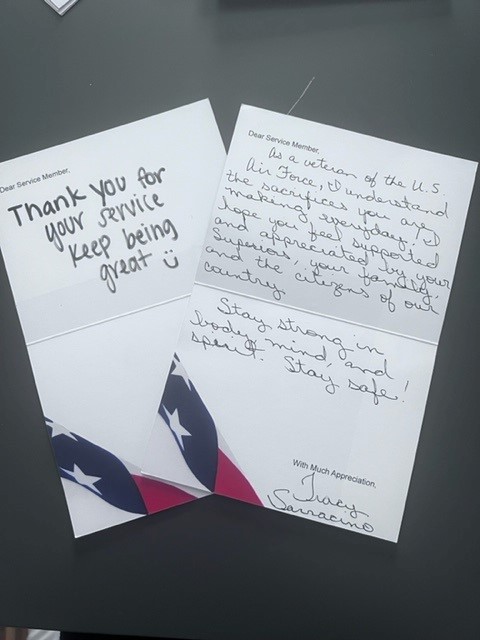 Dear Service Member,
Thank you for
your service
Keep being
great
Dear Service Member,
As a veteran of the U.S.
Air Force, I understand
the sacrifices you are
making everyday. I
hope you feel supported
and appreciated by your
Superiors, your family,
and the citizens of our
country.
Stay strong in
body, mind, and
spirit. Stay safe!
With Much Appreciation,
Tracy
Sarracino